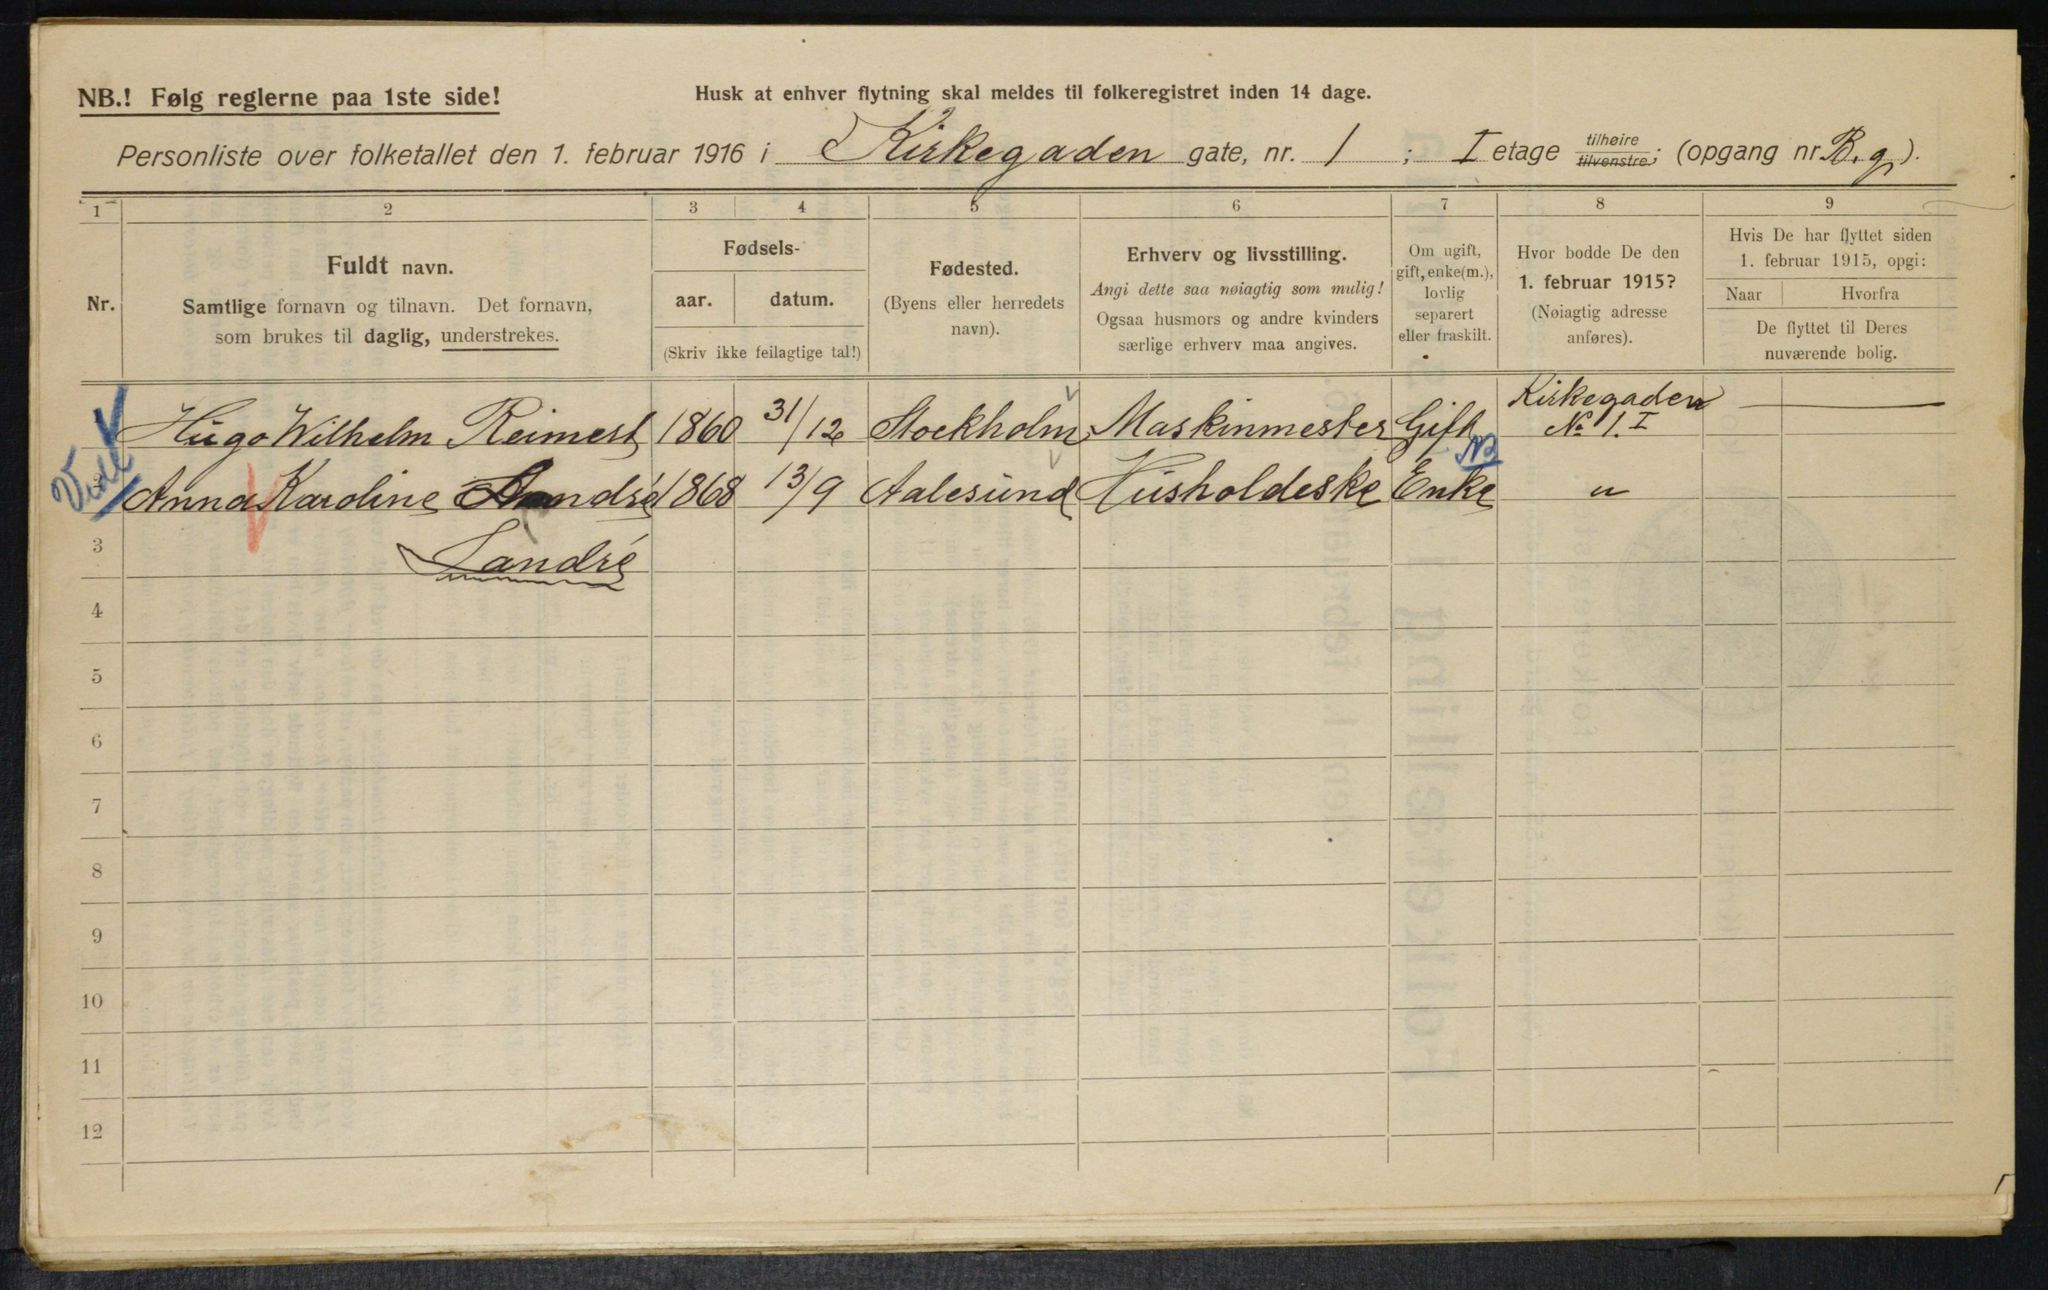 NB.! Følg reglerne paa 1ste side!
Husk at enhver flytning skal meldes til folkeregistret inden 14 dage.
Personliste over folketallet den 1. februar 1916 i Kirkegaden gate, nr. 1 ; I etage tilhøire tilvenstre; (opgang nr. B.g.).
1 2 3 4 5 6 7 8 9
Nr.
Fuldt navn.
Samtlige fornavn og tilnavn. Det fornavn,
som brukes til daglig, understrekes.
Fødsels-
aar. datum.
(Skriv ikke feilagtige tal!)
Fødested.
(Byens eller herredets
navn).
Erhverv og livsstilling.
Angi dette saa nøiagtig som mulig!
Ogsaa husmors og andre kvinders
særlige erhverv maa angives.
Om ugift,
gift, enke(m.),
lovlig
separert
eller fraskilt.
Hvor bodde De den
1. februar 1915?
(Nøiagtig adresse
anføres).
Hvis De har flyttet siden
1. februar 1915, opgi:
Naar Hvorfra
De flyttet til Deres
nuværende bolig.
Hugo Wilhelm Reimers 1860 31/12 Stockholm Maskinmester Gift Kirkegaden
No 1. I
NB
Anna Karoline 1868 13/9 Aalesund Husholdeske Enke "
3
Landré
4
5
6
7
8
9
10
11
12